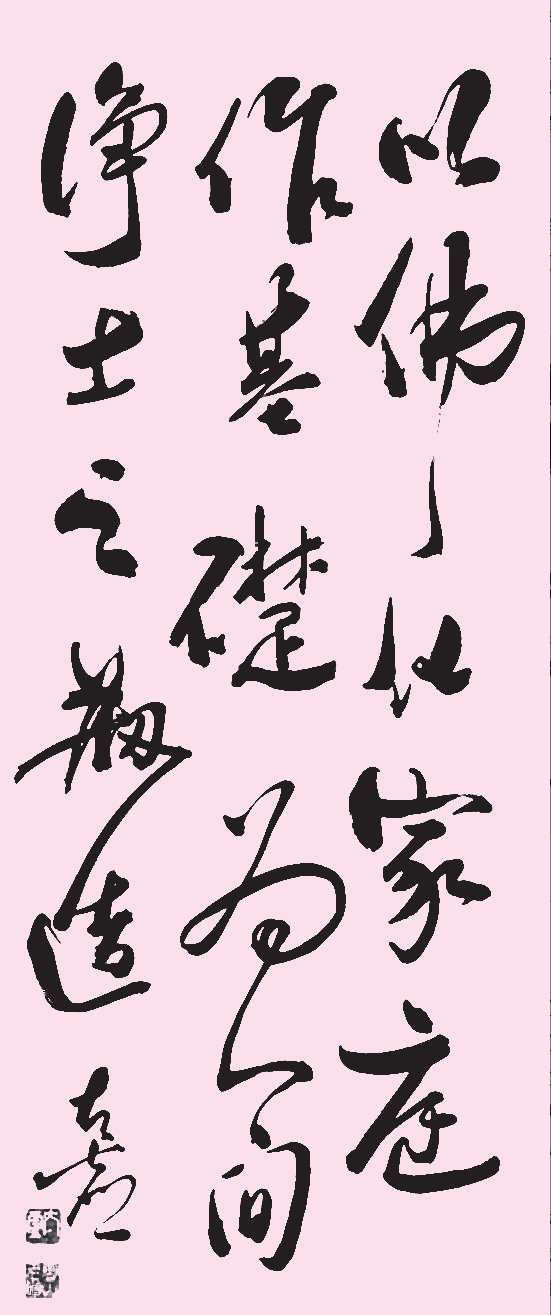 以佛化家庭
作基礎為人間
淨土之造